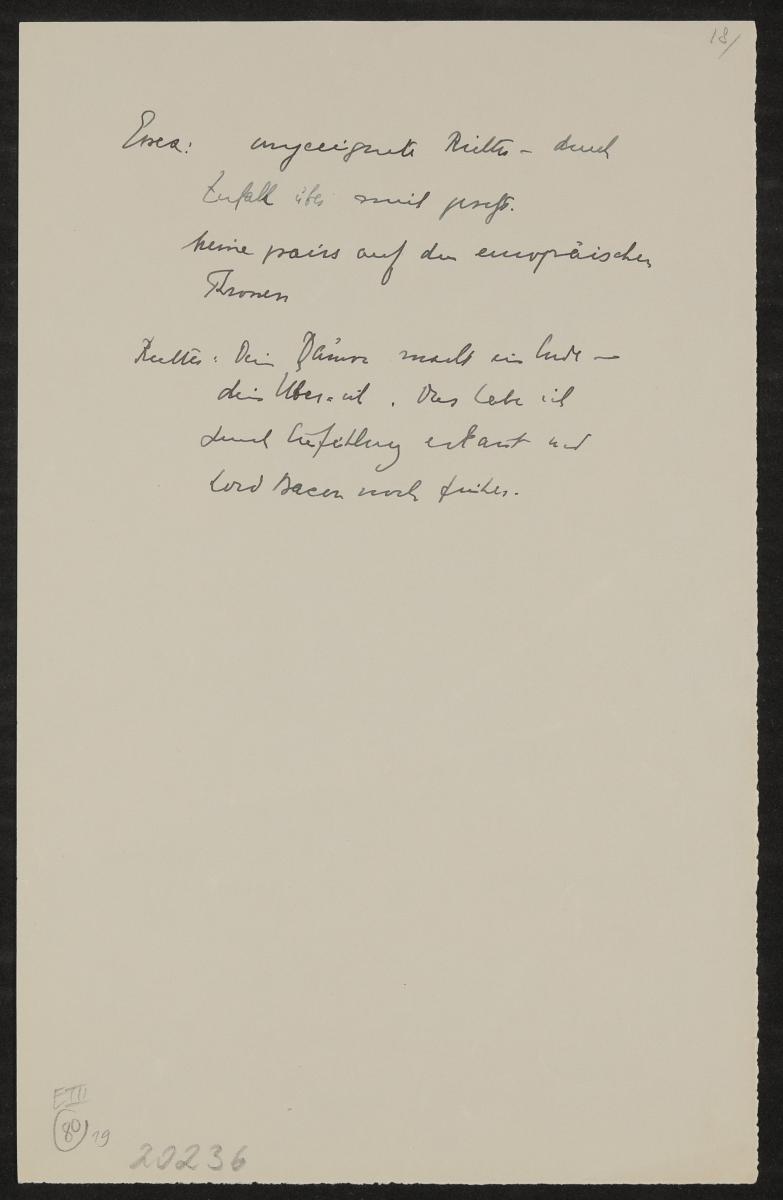 18/
Essex: ungeeignete Richter – durch
Zufall über mich gesetzt.
keine pairs auf den europäischen
Thronen
Richter: Dein Dämon macht ein Ende –
dein Uber-ich. Das habe ich
durch Einfühlung erkannt und
Lord Bacon noch früher.
E III
80 19
20236